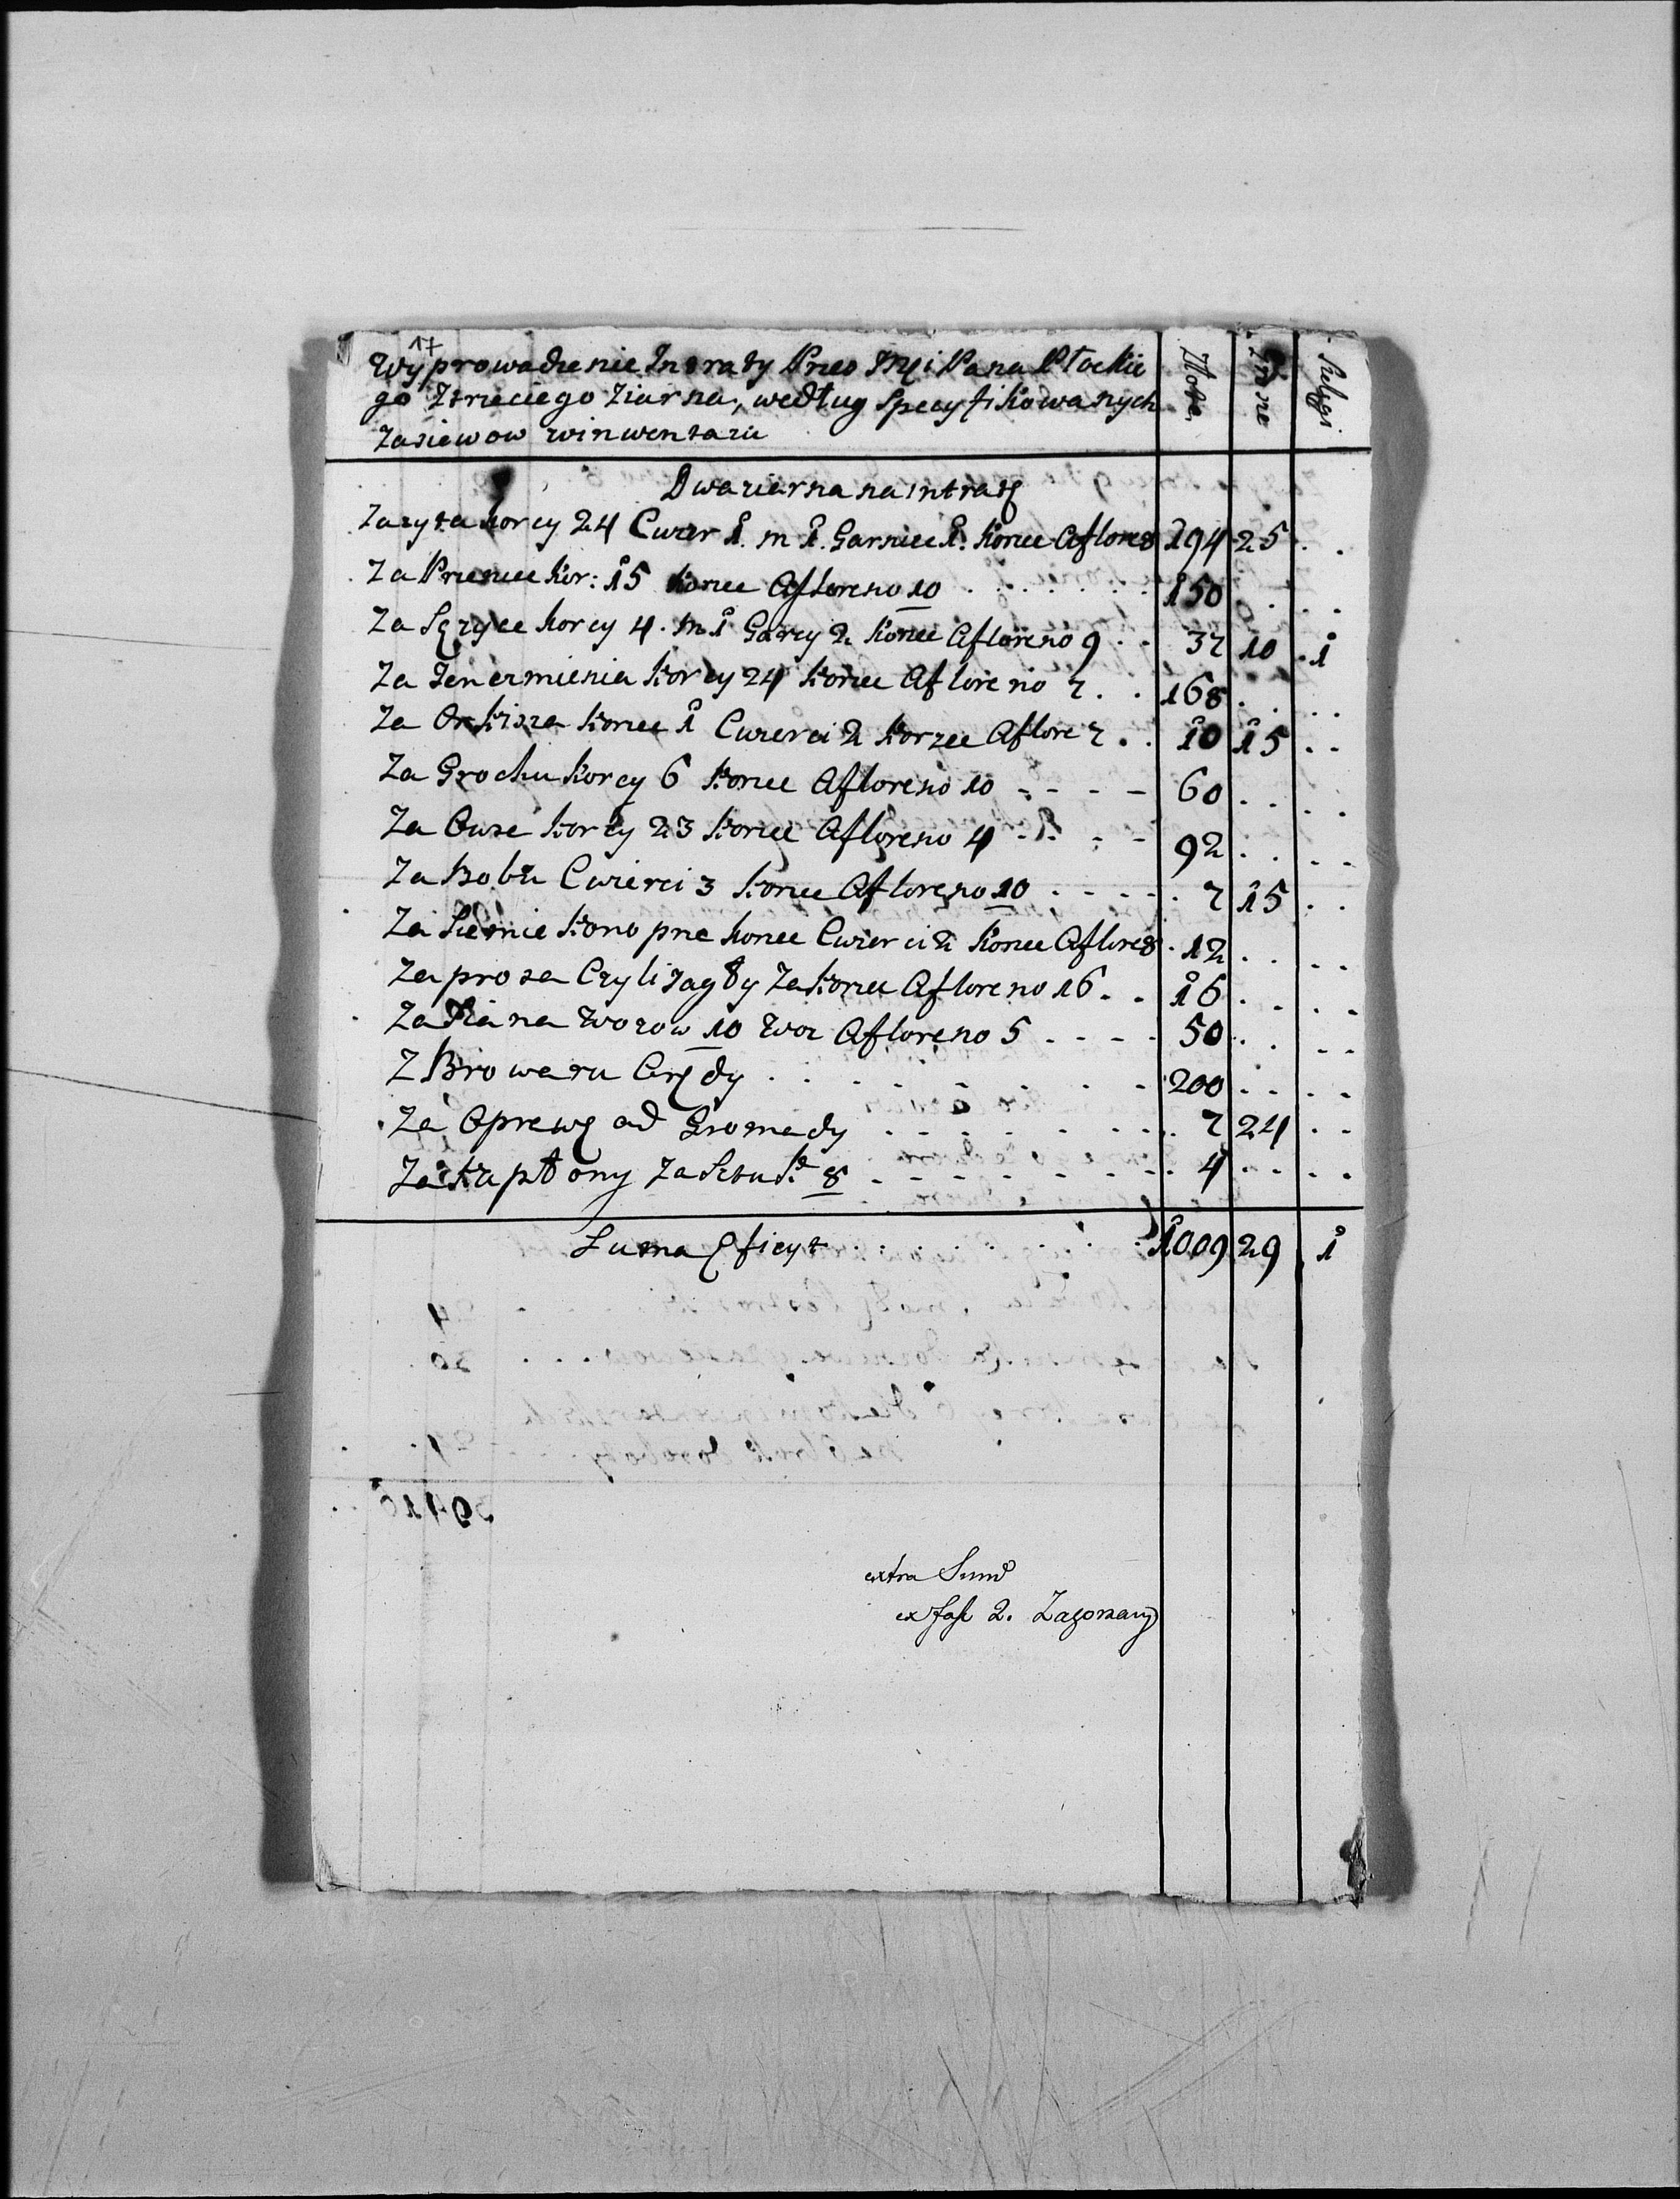 17
Wyprowadzenie Intraty Przes Imci Pana Płockie
go Ztrzeciego Ziarna, według Specyfikowanych
Zasiewow winwentarzu
Złote Grosze Szelągi
Dwaziarna na intratę
Zazyta korcy 24 Cwier 1. m 1. Garniec 1. Korzec Aflore8 194 25 . .
Za Przenice kor: 15 korzec Afloreno 10 150 . . . .
Za Sązyce korcy 4. m 1 Garcy 2 korzec Afloreno 9 . . 37 10 . 1
Za Jenczmienia korcy 24 korzec Afloreno 7 . . 168 . . . .
Za Orkisza korzec 1 Cwierci 2 korzec Aflore 7 . . 10 15 . .
Za Grochu korcy 6 korzec Afloreno 10 - - - - 60 . . . .
Za Owse korcy 23 korzec Afloreno 4 - - - - 92 . . . .
Za Bobu Cwierci 3 korzec Afloreno 10 . - - - . 7 15 . .
Za Siemie konopne korzec Cwierci 2 korzec Aflore8 . 12 . . . .
Za prosa Czyli Jagły Za korzec Afloreno 16 . . 16 . . . .
Za Siana Wozow 10 Woz Afloreno 5 . - - - 50 . . . .
Z Browaru Arędy . . . . . . . . 200 . . . .
Za Oprawę od Gromady . . . . . . . . 7 24 . .
Za kapłony Za Sztuk 8 . - - - - - - . 4 . . . .
Suma Efficyt . . . . . . . . 1009 29 . 1
extra Sum
ex fasc 2. Zagorzany